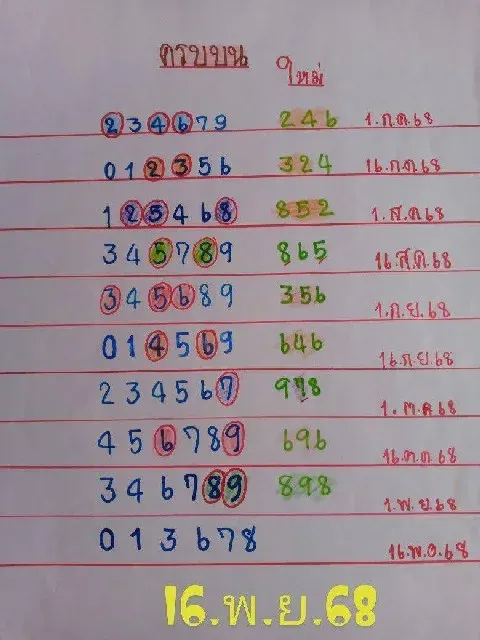 ครบบน ใหม่
234679 246 1.ก.ค.68
012356 324 16.ก.ค.68
123468 852 1.ส.ค68
345789 865 16.ส.ค.68
345689 356 1.ก.ย.68
014569 646 16.ก.ย.68
234567 978 1.ต.ค68
456789 696 16.ต.ค.68
346789 898 1.พ.ย.68
013678 16.พ.ย.68
16.พ.ย.68